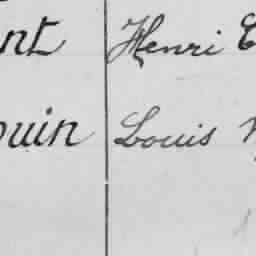 nt Henri
ouin Louis